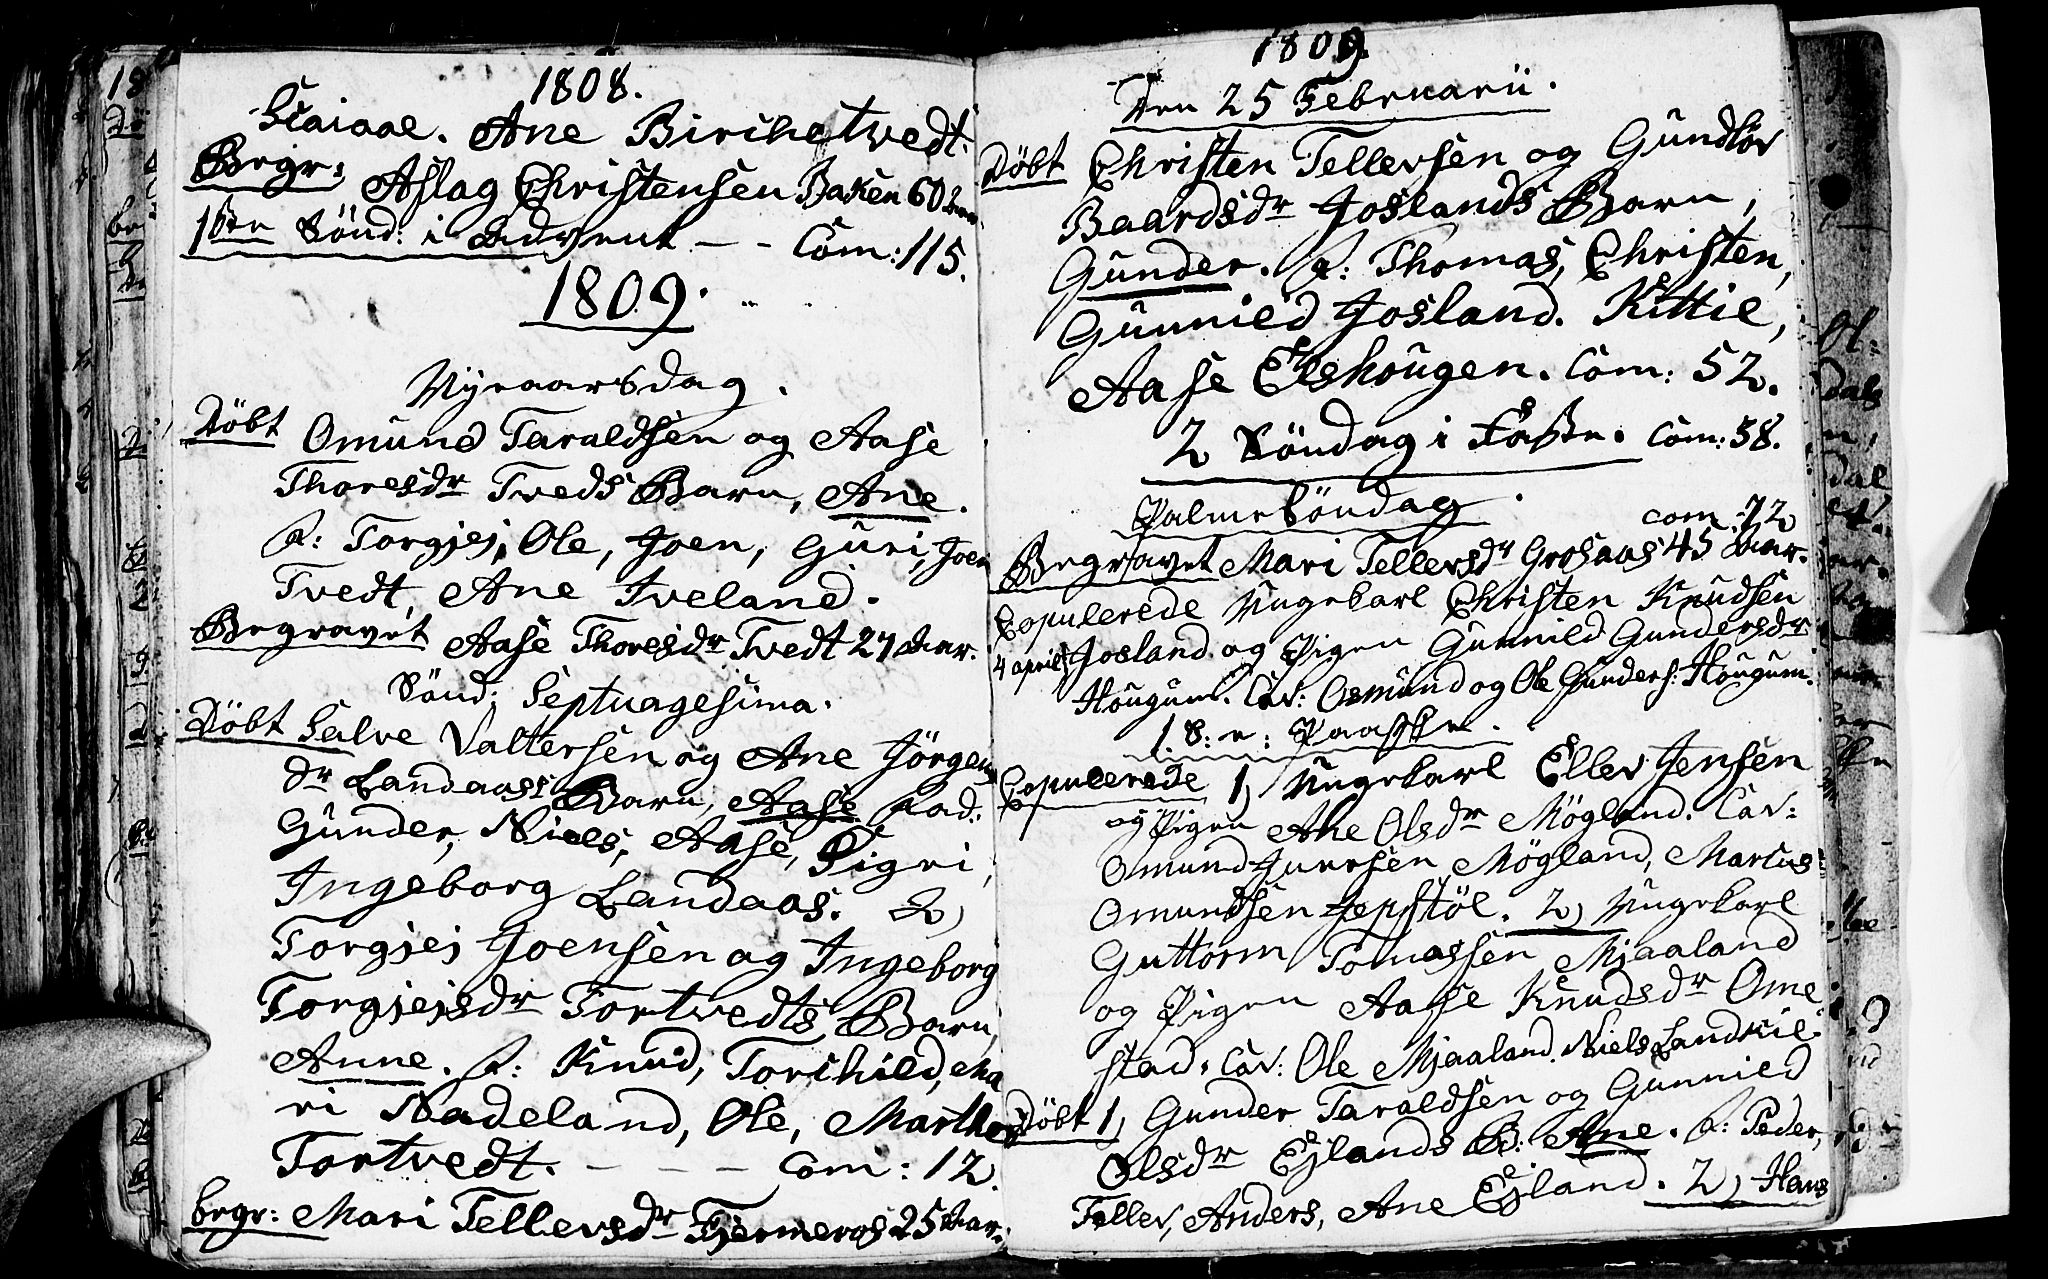 1808.
Staiaae. Ane Birchetvedt.
Begr: Aslag Christensen Baken 60 Aar.
1ste Sönd: i Advent - - Com: 115.
1809.
Nyeaarsdag.
Döbt Omund Taraldsen og Aase
Thoresdr Tveds Barn, Ane.
F: Torgjej, Ole, Joen, Guri, Joen
Tvedt, Ane Iveland.
Begravet Aase Thoresdr Tvedt 27 Aar.
Sönd: Septuagesima.
Döbt Salve Valtersen og Ane Jörgens
dr Landaass Barn, Aase Fad:
Gunder, Niels, Aase, Sigri,
Ingeborg Landaas. 2)
Torgjej Joensen og Ingeborg
Torgjejsdr Tortvedts Barn,
Anne. F: Knud, Torchild, Ma
ri Nadeland, Ole, Marthe
Tortvedt. - - - Com: 12.
begr: Mari Tellevsdr Fjermeros 25 Aar.
1809.
Den 25 Februarii.
Döbt Christen Tellevsen og Gundlöv
Baardsdr Joslands Barn,
Gunder. F: Thomas, Christen,
Gunnild Josland. Kittil,
Aase Elshougen. Com: 52.
2 Söndag i Faste. Com: 58.
Palmesöndag.
com: 72
Begravet Mari Tellevsdr Grosaas 45 Aar.
Copulerede Ungekarl Christen Knudsen
4 april Josland og Pigen Gunnild Gundersdr
Hougum. Cav: Osmund og Ole Gunders: Hougum.
1. S. e: Paaske.
Copulerede 1) Ungekarl Ellev Jensen
og Pigen Ane Olsdr Mögland. Cav:
Omund Iversen Mögland, Marcus
Omundsen Jepstöl. 2) Ungekarl
Guttorm Tomassen Mjaaland
og Pigen Aasse Knudsdr Ome
stad. Cav: Ole Mjaaland. Niels Landkil:
Döbt 1) Gunder Taraldsen og Gunnild
Olsdr Ejlands B: Ane. F: Peder,
Tellev, Anders, Ane Ejland. 2) Hans